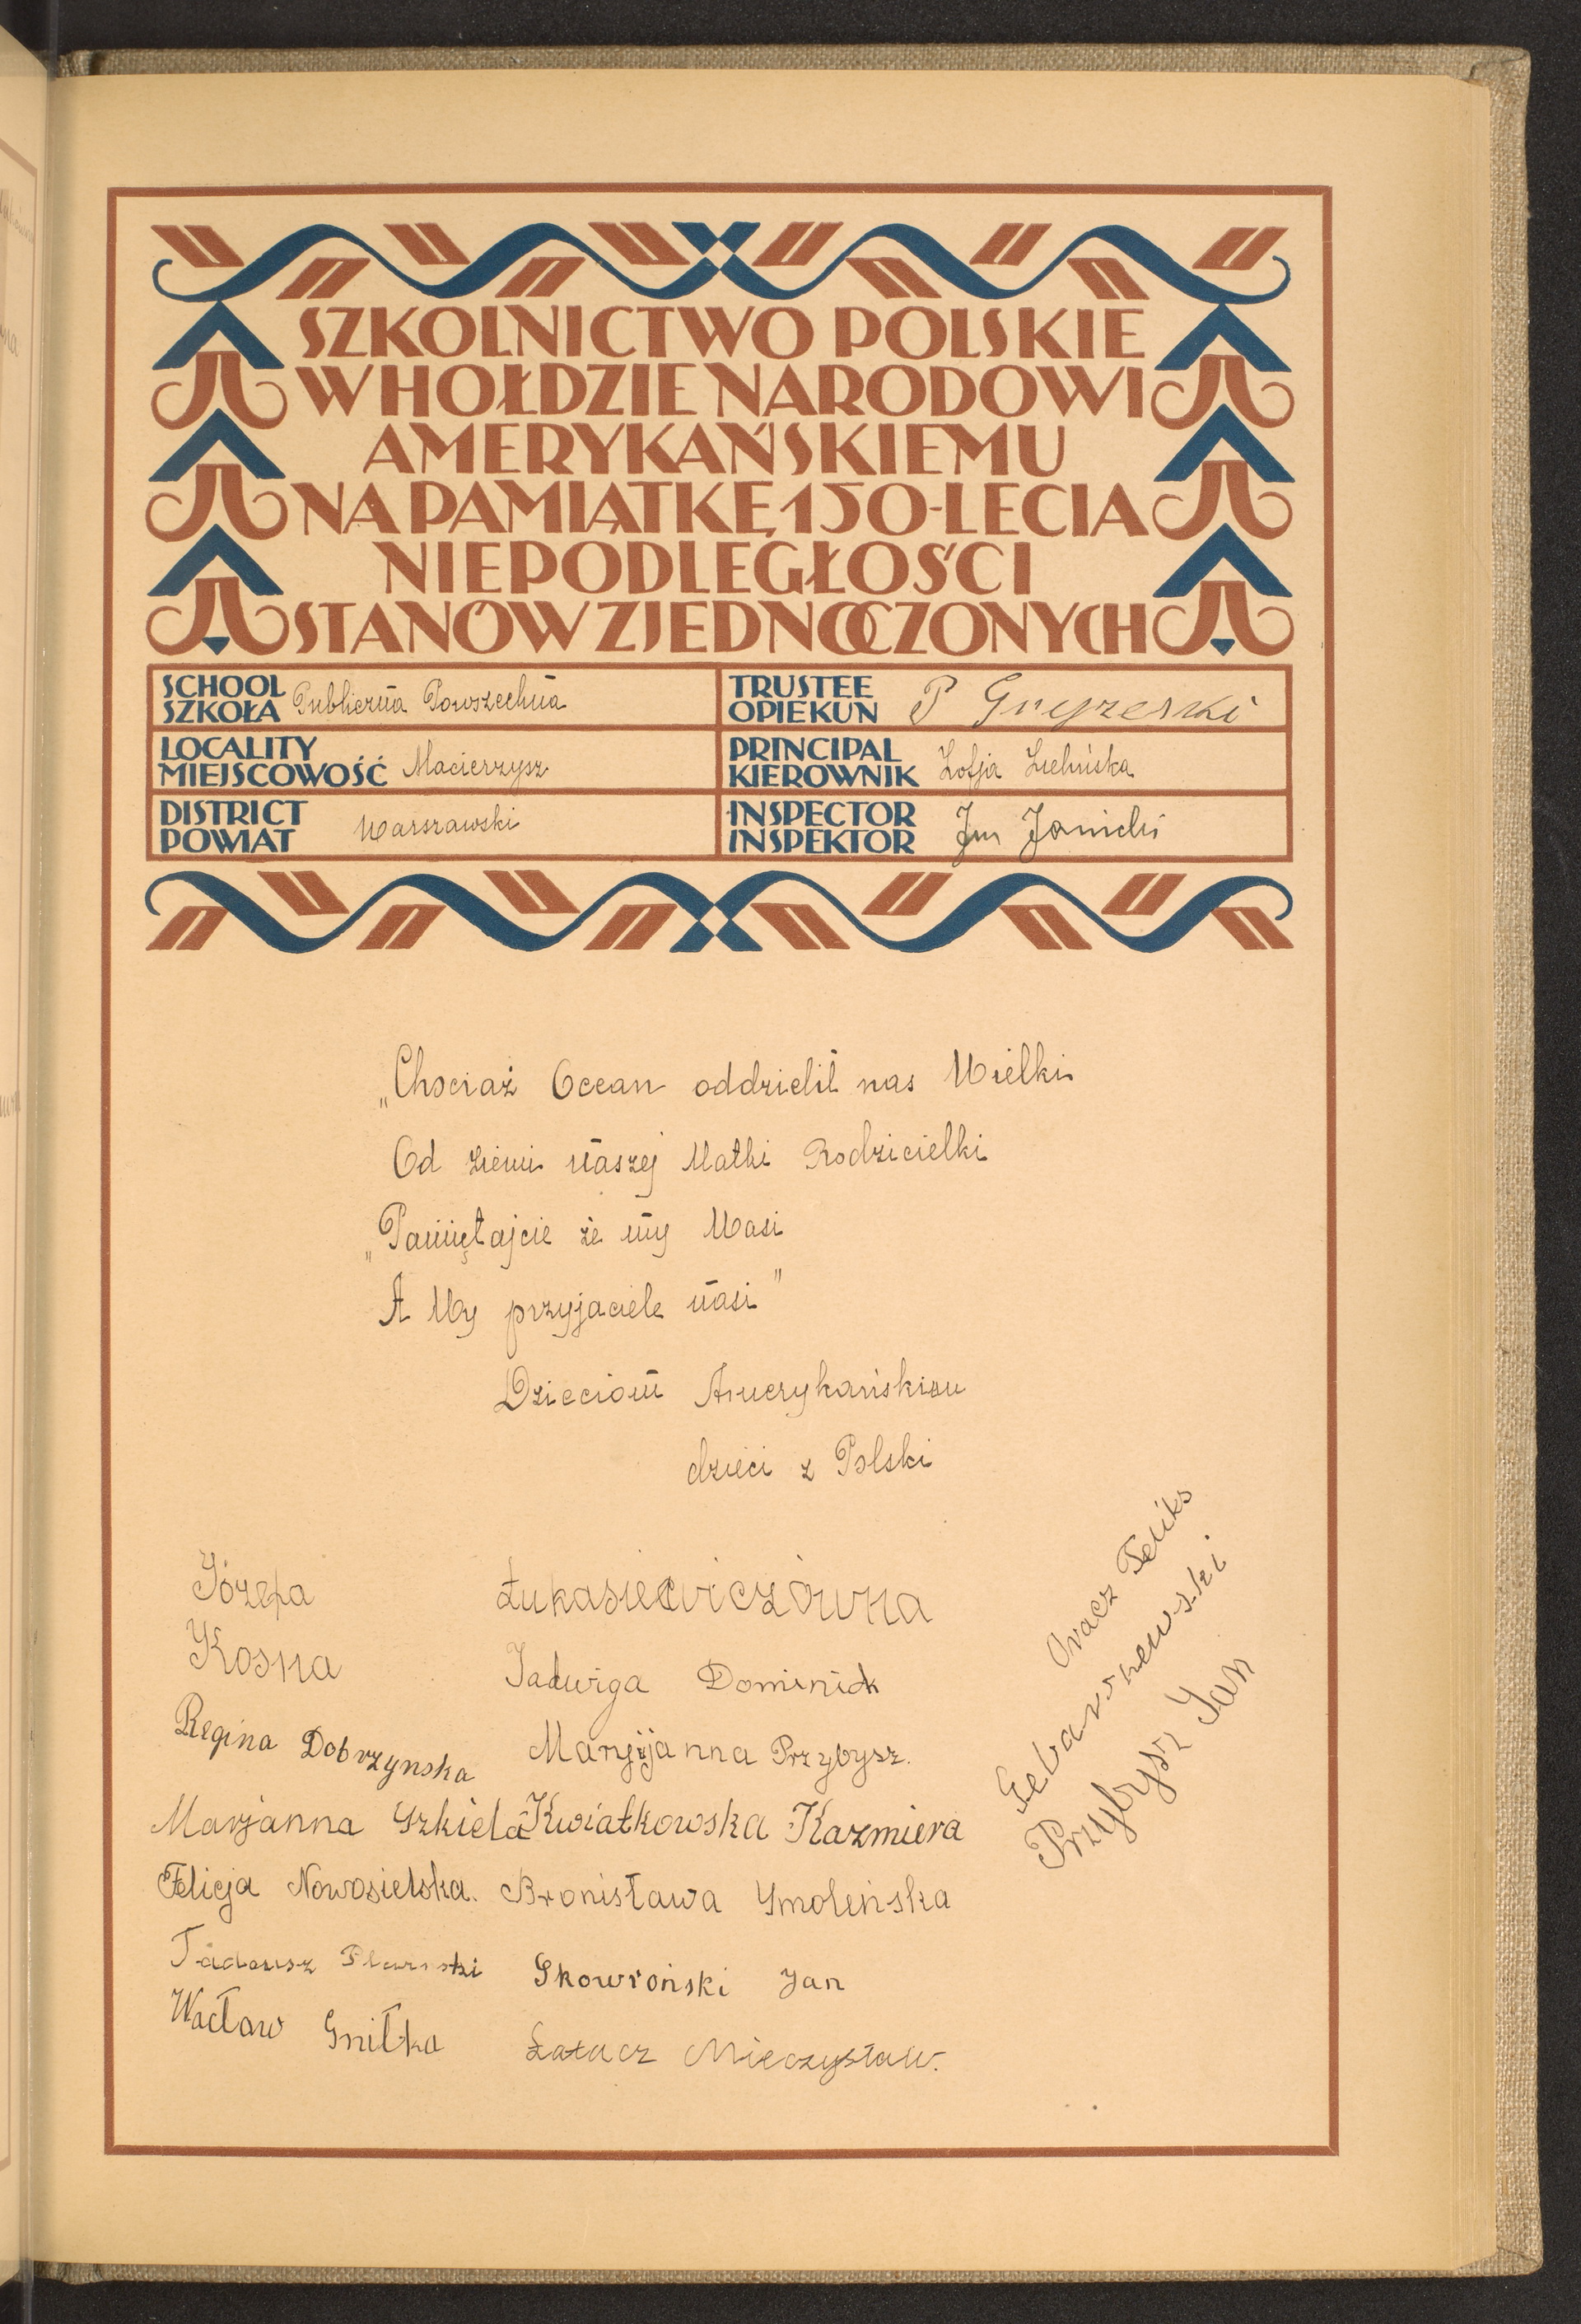 SZKOLNICTWO POLSKIE
W HOŁDZIE NARODOWI
AMERYKAŃSKIEMU
NA PAMIĄTKĘ 150-LECIA
NIEPODLEGŁOŚCI
STANÓW ZJEDNOCZONYCH
SCHOOL
SZKOŁA Publiczna Powszechna
TRUSTEE
OPIEKUN P
LOCALITY
MIEJSCOWOŚĆ Macierzysz
PRINCIPAL
KIEROWNIK Zofja Zielińska
DISTRICT
POWIAT Warszawski
INSPECTOR
INSPEKTOR Jan Janicki
„Chociaż Ocean oddzielił nas Wielki
Od ziemi naszej Matki Rodzicielki
„Pamiętajcie że my Wasi
A Wy przyjaciele nasi”
Dzieciom Amerykańskim
dzieci z Polski
Józefa Łukasiewiczówna
Kosna
Jadwiga Dominick
Regina Dobrzynska
Maryjanna Przybysz.
Marjanna Szkiela
Kwiatkowska Kazmiera
Felicja Nowosielska.
Bronisława Smoleńska
Tadeusz
Skowroński Jan
Wacław Gnitka
Łatacz Mieczysław.
Oracz Feliks
Przybysz Jan